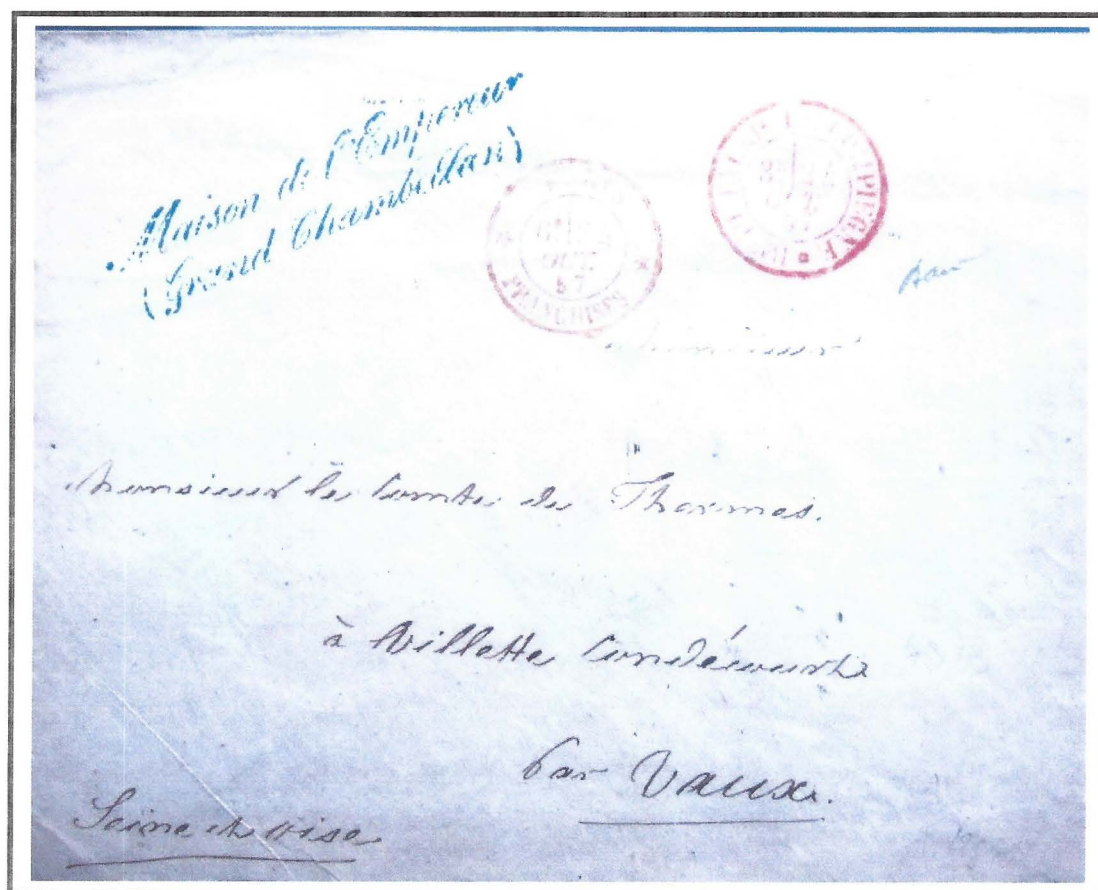 Maison de l'Empereur
(Grand Chambellan)
FRANCHISES
57
Monsieur
Monsieur le Comte de Tharmes.
à Villette Condécourt
par Vaux.
Seine et Oise